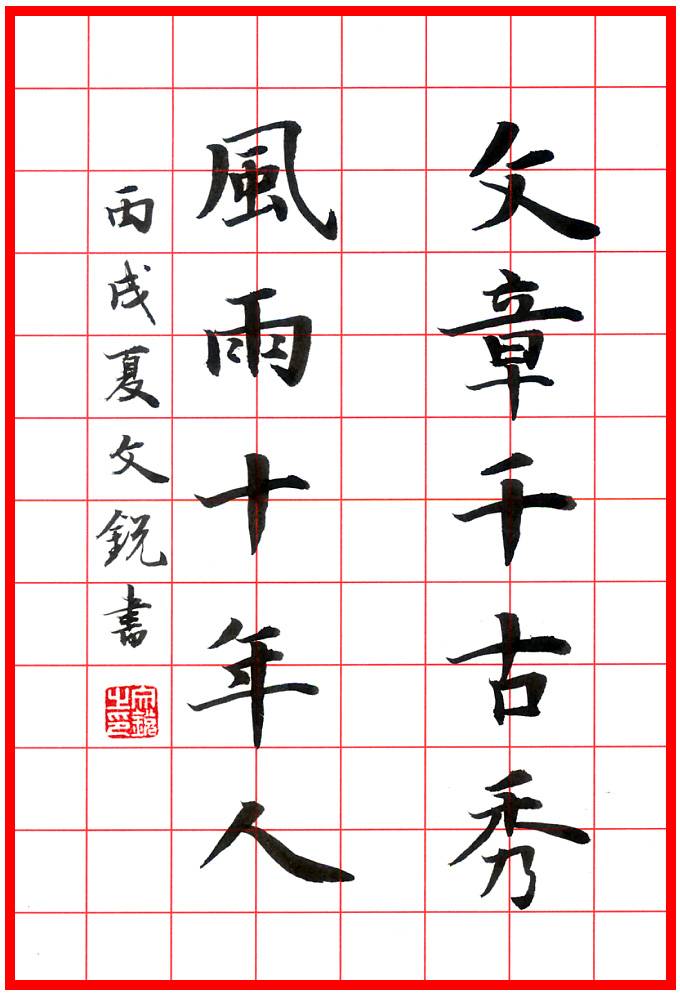 文章千古秀
風雨十年人
丙戌夏文銳書
文銳之印